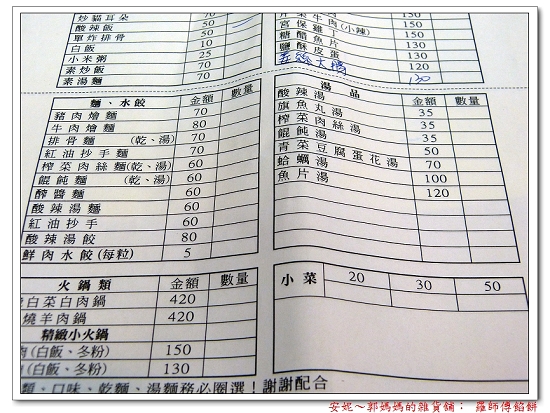 炒貓耳朵 70
酸辣飯 70
單炸排骨 50
白飯 10
小米粥 25
素炒飯 70
素湯麵 70
麵、水餃 金額 數量
豬肉燴麵 70
牛肉燴麵 80
排骨麵 (乾、湯) 70
紅油抄手麵 70
榨菜肉絲麵(乾、湯) 60
餛飩麵 (乾、湯) 60
醡醬麵 60
酸辣湯麵 60
紅油抄手 60
酸辣湯餃 80
鮮肉水餃(每粒) 5
火鍋類 金額 數量
白菜白肉鍋 420
燒羊肉鍋 420
精緻小火鍋
(白飯、冬粉) 150
(白飯、冬粉) 130
類、口味、乾麵、湯麵務必圈選！謝謝配合
牛肉(小辣) 150
宮保雞丁 150
糖醋魚片 130
鹽酥皮蛋 130
120
130
湯品 金額 數量
酸辣湯 35
旗魚丸湯 35
榨菜肉絲湯 35
餛飩湯 50
青菜豆腐蛋花湯 70
蛤蠣湯 100
魚片湯 120
小菜 20 30 50
安妮～郭媽媽的雜貨舖： 羅師傅餡餅